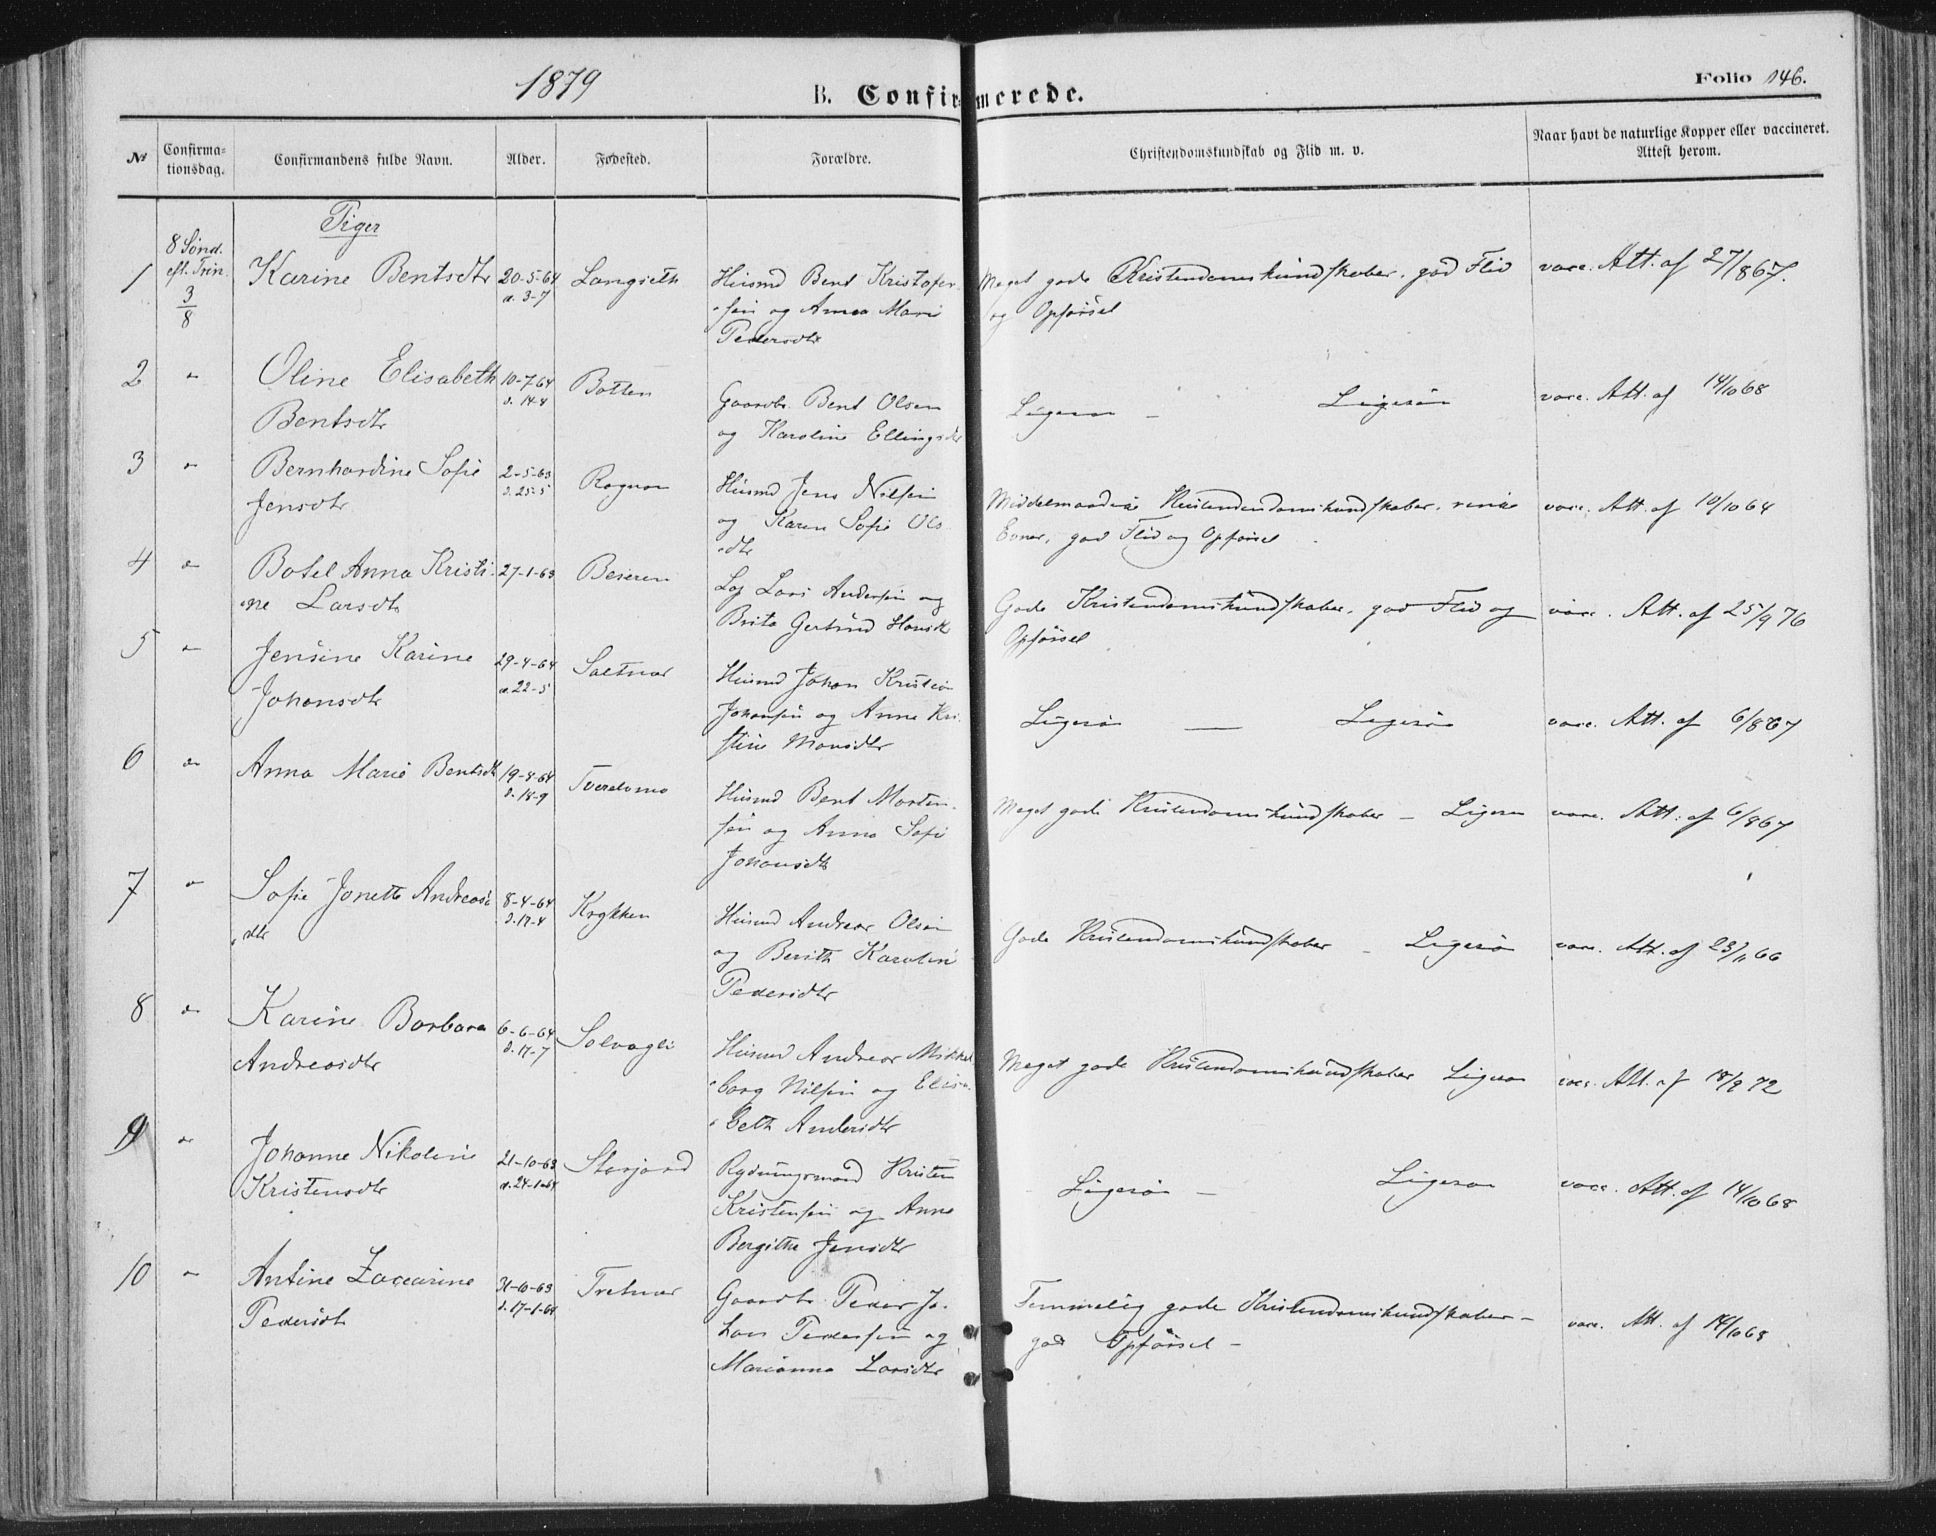 1879
B. Confirmerede.
Folio 146.
No
Confirma-
tionsdag.
Confirmandens fulde Navn.
Alder.
Fødested.
Forældre.
Christendomskundskab og Flid m. v.
Naar havt de naturlige Kopper eller vaccineret.
Attest herom.
Piger
1
8 Sønd.
eft. Trin.
3/8
Karine Bentsdtr
20-5-64
d. 3-7
Langseth
Husmd Bent Kristofer-
sen og Anna Mari
Pedersdtr
Meget gode Kristendomskundskaber, god Flid
og Opførsel
vacc. Att. af 27/8 67.
2
"
Oline Elisabeth
Bentsdtr
10-7-64
d. 14-8
Botten
Gaardbr. Bent Olsen
og Karoline Ellingsdtr
Ligesaa – Ligesaa
vacc. Att. af 14/10 68
3
"
Bernhardine Sofie
Jensdtr
2-5-63
d. 25-5
Rognan
Husmd Jens Nilsen
og Karen Sofie Ols-
dtr
Middelmaadige Kristendomskundskaber, ringe
Evner, god Flid og Opførsel
vacc. Att. af 10/10 64
4
"
Botel Anna Kristi-
ne Larsdtr
27-1-63
Beieren
Log Lars Andersen og
Brita Gertrud Hansdtr
Gode Kristendomskundskaber, god Flid og
Opførsel
vacc. Att. af 25/9 76
5
"
Jensine Karine
Johansdtr
29-4-64
d. 22-5
Saltnes
Husmd Johan Kristian
Johansen og Anne Kri-
stine Monsdtr
Ligesaa — Ligesaa
vacc. Att. af 6/8 67
6
"
Anna Marie Bentsdtr
19-8-64
d. 18-9
Tverdomo
Husmd Bent Morten-
sen og Anna Sofie
Johansdtr
Meget gode Kristendomskundskaber – Ligesaa
vacc. Att. af 6/8 67
7
"
Sofie Jonette Andreas-
dtr
8-4-64
d. 17-4
Krykken
Husmd Andreas Olsen
og Berith Karoline
Pedersdtr
Gode Kristendomskundskaber – Ligesaa
vacc. Att. af 23/11 66
8
"
Karine Barbara
Andreasdtr
6-6-64
d. 17-7
Solvagli
Husmd Andreas Mikkel-
borg Nilsen og Elisa-
beth Andersdtr
Meget gode Kristendomskundskaber Ligesaa
vacc. Att. af 18/9 72
9
"
Johanne Nikoline
Kristensdtr
21-10-63
d. 24-1-64
Storjord
Rydningsmand Kristen
Kristensen og Anne
Bergitha Jensdtr
Ligesaa – Ligesaa
vacc. Att. af 14/10 68
10
"
Antine Zaccarine
Pedersdtr
31-10-63
d. 17-1-64
Tretnes
Gaardbr. Peder Jo-
han Pedersen og
Marianna Larsdtr
Temmelig gode Kristendomskundskaber –
god Opførsel –
vacc. Att. af 14/10 68